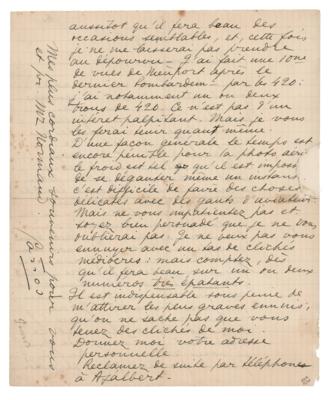 aussitôt qu'il fera beau des
occasions semblables, et, cette fois
je ne me laisserai pas prendre
au dépourvu - J'ai fait une 10ne
de vues de Nieuport après le
dernier bombardem- par le 420:
j'ai notamment un ou deux
trous de 420. Ce n'est pas d'un
intérêt palpitant. Mais je vous
les ferai tenir quant même.
D'une façon générale le temps est
encore pénible pour la photo aér:
le froid est tel qu'il est impos.
de se déganter même un instant
c'est difficile de faire des choses
délicates avec des gants d'aviateur.
Mais ne vous impatientez pas et
soyez bien persuadé que je ne vous
oublierai pas. Je ne veux pas vous
ennuyer avec un tas de clichés
médiocres: mais comptez, dès
qu'il fera beau sur un ou deux
numéros très épatants.
Il est indispensable sous peine de
m'attirer les plus graves ennuis,
qu'on ne sache pas que vous
tenez des clichés de moi.
Donnez moi votre adresse
personnelle
Réclamez de suite par téléphone
à Azalbert.
Mes plus cordiaux souvenirs pour vous
et pr Mr Normand.